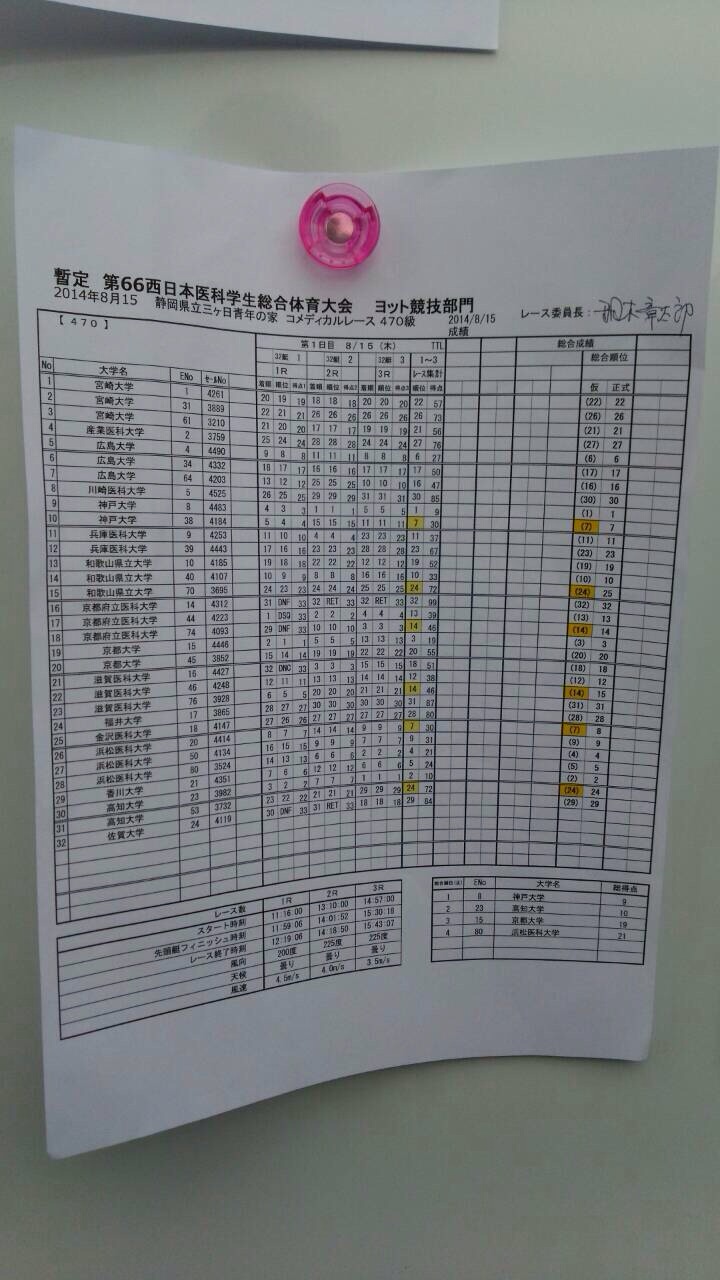 暫定 第66西日本医科学生総合体育大会 ヨット競技部門
2014年8月15 静岡県立三ヶ日青年の家 コメディカルレース 470級 2014/8/15 レース委員長：
成績
【 470 】 第1日目 8/15 (木) TTL 総合成績
32艇 1 32艇 2 32艇 3 1～3 総合順位
No 大学名 ENo セールNo 1R 2R 3R レース集計
着順 順位 得点1 着順 順位 得点2 着順 順位 得点3 順位 得点 仮 正式
1 宮崎大学 1 4261 20 19 19 18 18 18 20 20 20 22 57 (22) 22
2 宮崎大学 31 3889 22 21 21 26 26 26 26 26 26 26 73 (26) 26
3 宮崎大学 61 3210 21 20 20 17 17 17 19 19 19 21 56 (21) 21
4 産業医科大学 2 3759 25 24 24 28 28 28 24 24 24 27 76 (27) 27
5 広島大学 4 4490 9 8 8 11 11 11 8 8 8 6 27 (6) 6
6 広島大学 34 4332 18 17 17 16 16 16 17 17 17 17 50 (17) 17
7 広島大学 64 4203 13 12 12 25 25 25 10 10 10 16 47 (16) 16
8 川崎医科大学 5 4525 26 25 25 29 29 29 31 31 31 30 85 (30) 30
9 神戸大学 8 4483 4 3 3 1 1 1 5 5 5 1 9 (1) 1
10 神戸大学 38 4184 5 4 4 15 15 15 11 11 11 7 30 (7) 7
11 兵庫医科大学 9 4253 11 10 10 4 4 4 23 23 23 11 37 (11) 11
12 兵庫医科大学 39 4443 17 16 16 23 23 23 28 28 28 23 67 (23) 23
13 和歌山県立大学 10 4185 19 18 18 22 22 22 12 12 12 19 52 (19) 19
14 和歌山県立大学 40 4107 10 9 9 8 8 8 16 16 16 10 33 (10) 10
15 和歌山県立大学 70 3695 24 23 23 24 24 24 25 25 25 24 72 (24) 25
16 京都府立医科大学 14 4312 31 DNF 33 32 RET 33 32 RET 33 32 99 (32) 32
17 京都府立医科大学 44 4223 1 DSQ 33 2 2 2 4 4 4 13 39 (13) 13
18 京都府立医科大学 74 4093 29 DNF 33 10 10 10 3 3 3 14 46 (14) 14
19 京都大学 15 4446 2 1 1 5 5 5 13 13 13 3 19 (3) 3
20 京都大学 45 3852 15 14 14 19 19 19 22 22 22 20 55 (20) 20
21 滋賀医科大学 16 4427 32 DNC 33 3 3 3 15 15 15 18 51 (18) 18
22 滋賀医科大学 46 4248 12 11 11 13 13 13 14 14 14 12 38 (12) 12
23 滋賀医科大学 76 3928 6 5 5 20 20 20 21 21 21 14 46 (14) 15
24 福井大学 17 3865 28 27 27 30 30 30 30 30 30 31 87 (31) 31
25 金沢医科大学 18 4147 27 26 26 27 27 27 27 27 27 28 80 (28) 28
26 浜松医科大学 20 4414 8 7 7 14 14 14 9 9 9 7 30 (7) 8
27 浜松医科大学 50 4134 16 15 15 9 9 9 7 7 7 9 31 (9) 9
28 浜松医科大学 80 3524 14 13 13 6 6 6 2 2 2 4 21 (4) 4
29 香川大学 21 4351 7 6 6 12 12 12 6 6 6 5 24 (5) 5
30 高知大学 23 3982 3 2 2 7 7 7 1 1 1 2 10 (2) 2
31 高知大学 53 3732 23 22 22 21 21 21 29 29 29 24 72 (24) 24
32 佐賀大学 24 4119 30 DNF 33 31 RET 33 18 18 18 29 84 (29) 29
レース数 1R 2R 3R
スタート時刻 11:16:00 13:10:00 14:57:00
先頭艇フィニッシュ時刻 11:59:06 14:01:52 15:30:18
レース終了時刻 12:19:06 14:18:50 15:43:07
風向 200度 225度 225度
天候 曇り 曇り 曇り
風速 4.5m/s 4.0m/s 3.5m/s
ENo 大学名 総得点
1 8 神戸大学 9
2 23 高知大学 10
3 15 京都大学 19
4 80 浜松医科大学 21